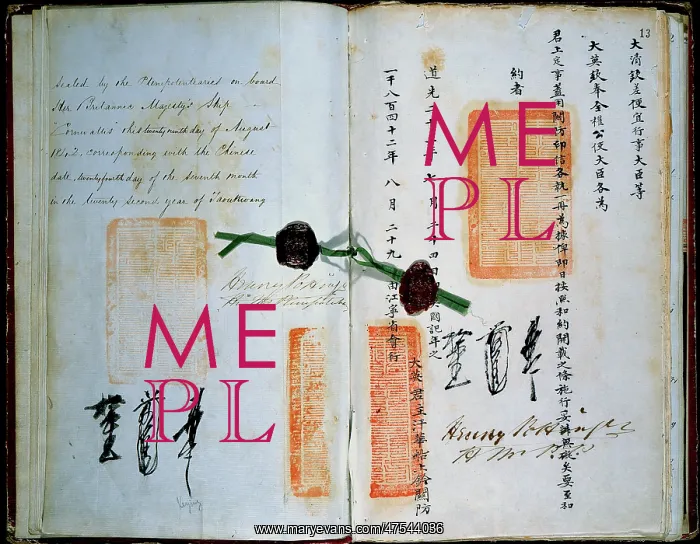 Sealed by the Plenipotentiaries on board
Her Britannic Majesty's Ship
"Cornwallis" this twenty ninth day of August
1842, corresponding with the Chinese
date, twenty fourth day of the seventh month
in the twenty second year of Taoukwang
Henry Pottinger
13
大清欽差便宜行事大臣等
大英欽奉全權公使大臣各為
君上定事蓋用關防印信各執一冊為據俾即日按照和約開載之條施行妥辦無礙矣要至和
約者
道光二十 七月二十四日 英國記年之
一千八百四十二年八月二十九 由江寧省會行
大英君主汗華船上鈐關防
Henry Pottinger
ME
PL
ME
PL
www.maryevans.com/47544086